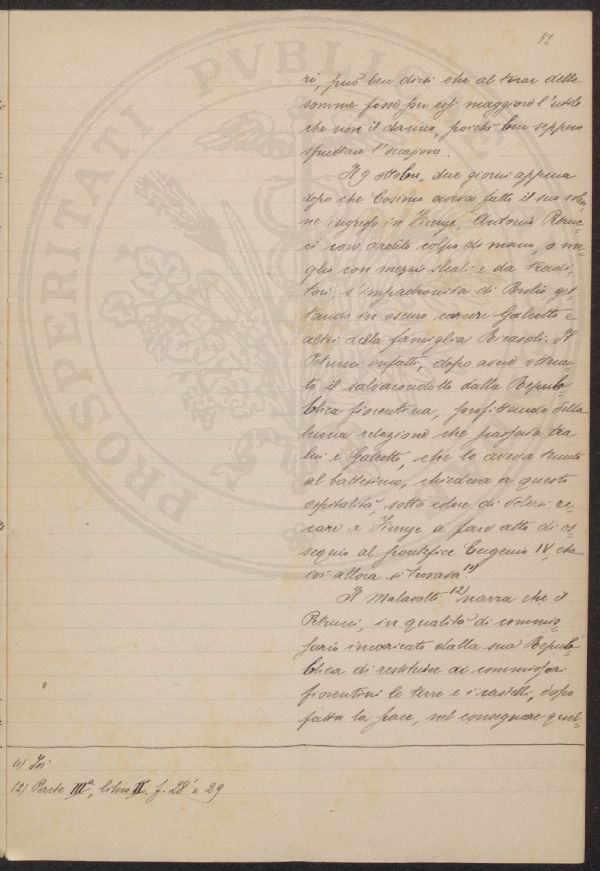 51
ri, può ben dirsi che al tirar delle
somme fosse per essi maggiore l'utile
che non il danno, poichè ben seppero
sfruttare l'occasione.
Il 9 ottobre, due giorni appena
dopo che Cosimo aveva fatto il suo solen-
ne ingresso in Firenze, Antonio Petruc-
ci con ardito colpo di mano, o me-
glio con mezzi sleali e da tradi-
tori, s'impadroniva di Brolio get-
tando in oscuro carcere Galeotto e
altri della famiglia Ricasoli. Il
Petrucci infatti, dopo avere ottenu-
to il salvacondotto dalla Repub-
blica fiorentina, profittando della
buona relazione che passava tra
lui e Galeotto, che lo aveva tenuto
al battesimo, chiedeva a questo
ospitalità, sotto colore di volersi re-
care a Firenze a fare atto di os-
sequio al pontefice Eugenio IV, che
ivi allora si trovava. (1)
Il Malavolti (2) narra che il
Petrucci, in qualità di commis-
sario incaricato dalla sua Repub-
blica di restituire ai commissari
fiorentini le terre e i castelli, dopo
fatta la pace, nel consegnare quel-
(1) Ivi
(2) Parte IIIª, libro II. f. 28ᵗ e 29
PROSPERITATI PVBLICAE